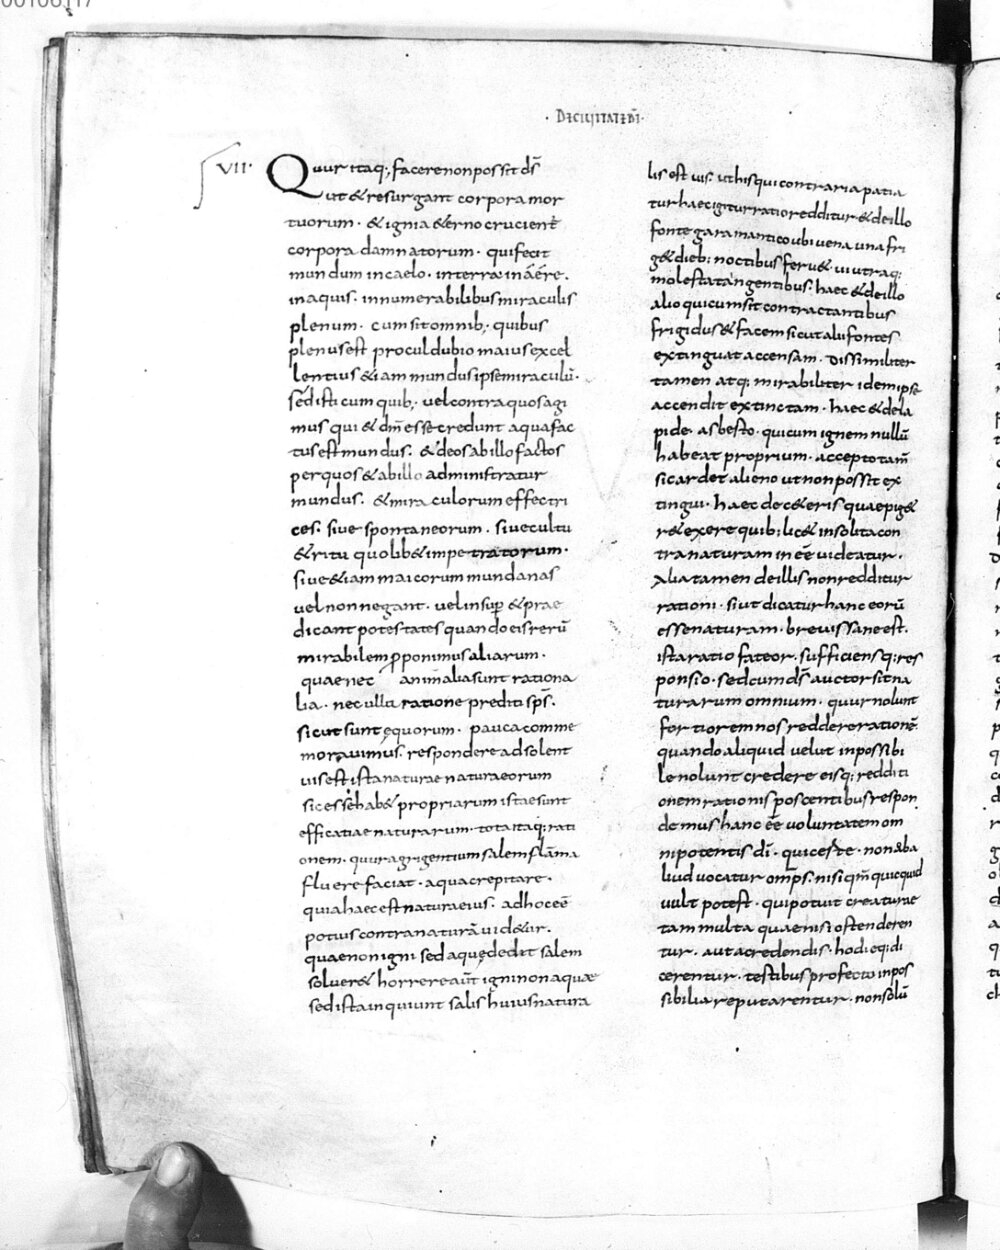 · DECIUITATE DĪ ·
VII·
Quur itaq; facere non possit ds̄
ut & resurgant corpora mor
tuorum · & igni aeterno crucient̄
corpora damnatorum · qui fecit
mundum in caelo · in terra in aere ·
in aquis · innumerabilibus miraculis
plenum · cum sit omnib; quibus
plenus est procul dubio maius & excel
lentius & iam mundus ipse miraculū ·
sed isti cum quib; uel contra quos agi
mus qui & dm̄ esse credunt a quo fac
tus est mundus · & deos ab illo factos
per quos & ab illo administratur
mundus · & miraculorum effectri
ces · siue spontaneorum · siue cultu
& ritu quolib& impetratorum ·
siue & iam maicorum mundanas
uel non negant · uel insup̄ & prae
dicant potestates quando eis rerū
mirabilem p̄ponimus aliarum ·
quae nec animalia sunt rationa
lia · nec ulla ratione prediti sps̄ ·
sicut sunt equorum · pauca comme
morauimus · respondere ad solent
uis est ista naturae natura eorum
sic esse hab& propriarum istae sunt
efficatiae naturarum · tota itaq; rati
onem · quur agrigentium salem flāma
fluere faciat · aqua crepitare ·
quia haec est natura eius · ad hoc eē
potius contra naturā uid&ur ·
quae non igni sed aquę dedit salem
soluere & horrere aūt igni non aquae
sed ista inquiunt salis huius natura
lis est uis · ut his qui contraria patia
tur haec igitur ratio redditur & de illo
fonte garamantico ubi uena una fri
g& dieb; noctibus feru& ui utraq;
molesta tangentibus · haec & de illo
alio qui cum sit contractantibus
frigidus & facem sicut alii fontes
extinguat accensam · dissimiliter
tamen atq; mirabiliter idem ipse
accendit extinctam · haec & de la
pide · asbesto · qui cum ignem nullū
habeat proprium · accepto tam̄
sic ardet alieno ut non possit ex
tingui · haec de ceteris quae pig&
re&exere quib; lic& insolita con
tra naturam in eē uideatur ·
Alia tamen de illis non redditur
rationi · si ut dicatur hanc eorū
esse naturam · breuis sane est ·
ista ratio fateor · sufficiensq; res
ponsio · sed cum ds̄ auctor sit na
turarum omnium · quur nolunt
fortiorem nos reddere rationē
quando aliquid uelut inpossibi
le nolunt credere eisq; redditi
onem rationis poscentibus respon
demus hanc eē uoluntatem om
nipotentis dī · qui certe · non ab a
liud uocatur omp̄s · nisi qm̄ quicquid
uult potest · qui potuit creaturae
tam multa quae nisi ostenderen
tur · aut a credendis · hodieq; di
cerentur · testibus profecto inpos
sibilia reputarentur · non solū